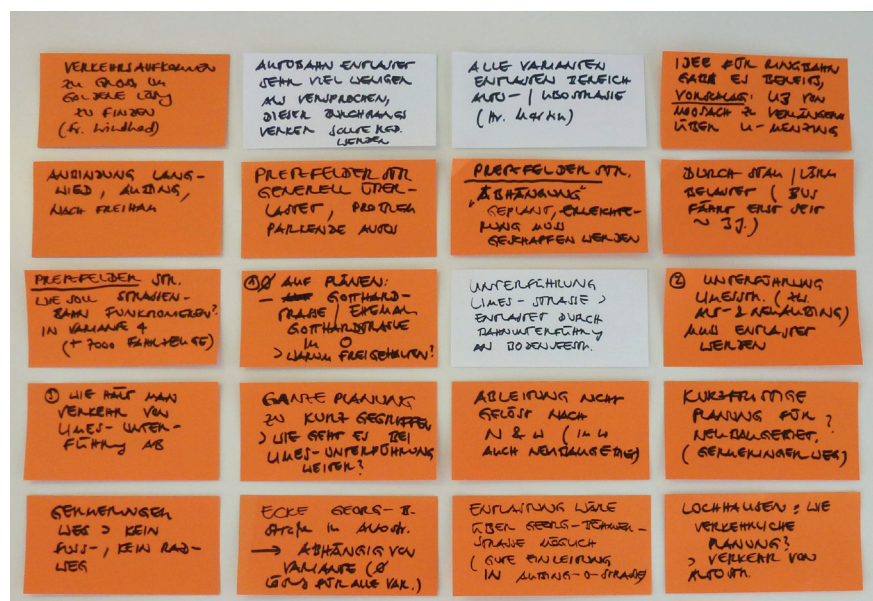 VERKEHRSAUFKOMMEN
ZU GROSS UM
GOLDENE LÖSG
ZU FINDEN
(Fr. Wildhad)
AUTOBAHN ENTLASTET
SEHR VIEL WENIGER
ALS VERSPROCHEN,
DIESER DURCHGANGS
VERKER SOLLTE RED.
WERDEN
ALLE VARIANTEN
ENTLASTEN BEREICH
AUTO- / UBOSTRASSE
(Hr.
IDEE FÜR RINGBAHN
GAB ES BEREITS,
VORSCHLAG: U3 VON
MOOSACH ZU VERLÄNGERN
ÜBER U-MENZING
ANBINDUNG LANG-
WIED, AUBING,
NACH FREIHAM
PREPZFELDER STR
GENERELL ÜBER-
LASTET, PROBLEM
PARKENDE AUTOS
PREPZFELDER STR.
"ABHÄNGUNG"
GEPLANT, ERLEICHTE-
RUNG MUSS
GESCHAFFEN WERDEN
DURCH STAU / LÄRM
BELASTET (BUS
FÄHRT ERST SEIT
~ 3 J.)
PREPZFELDER STR.
WIE SOLL STRASSEN-
BAHN FUNKTIONIEREN?
IN VARIANTE 4
(+ 7000 FAHRZEUGE)
① Ø AUF PLÄNEN:
- GOTTHARD-
STRASSE / EHEMAL.
GOTTHARDSTRASSE
IM O
> WARUM FREIGEHALTEN?
UNTERFÜHRUNG
LIMES-STRASSE >
ENTLASTET DURCH
BAHNUNTERFÜHRG
AN BODENSEESTR.
② UNTERFÜHRUNG
LIMESSTR. (ZW.
ALT- & NEUAUBING)
MUSS ENTLASTET
WERDEN
③ WIE HÄLT MAN
VERKEHR VON
LIMES-UNTER-
FÜHRUNG AB
GANZE PLANUNG
ZU KURZ GEGRIFFEN
> WIE GEHT ES BEI
LIMES-UNTERFÜHRUNG
WEITER?
ABLEITUNG NICHT
GELÖST NACH
N & W (IM W
AUCH NEUBAUGEBIETE)
KURZFRISTIGE
PLANUNG FÜR ?
NEUBAUGEBIET.
(GERMERINGER WEG)
GERMERINGER
WEG > KEIN
FUSS-, KEIN RAD-
WEG
ECKE GEORG-B.
STRASSE IN AUTOSTR.
→ ABHÄNGIG VON
VARIANTE (Ø
LÖSG FÜR ALLE VAR.)
ENTLASTUNG WÄRE
ÜBER GEORG-BÖHMER-
STRASSE MÖGLICH
(GUTE EINLEITUNG
IN AUBING-O-STRASSE)
LOCHHAUSEN: WIE
VERKEHRLICHE
PLANUNG?
> VERKEHR VON
AUTOSTR.